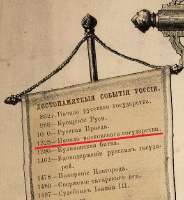 ДОСТОПАМЯТНЫЯ СОБЫТІЯ РОССІИ.
862—Начало русскаго государства.
988—Крещеніе Руси.
Русская Правда.
Начало московскаго государства.
1380—Куликовская битва.
1462—Единодержавіе русскихъ госуда-
рей.
1478—Покореніе Новгорода.
1480—Сверженіе татарскаго ига.
1497—Судебникъ Іоанна III.